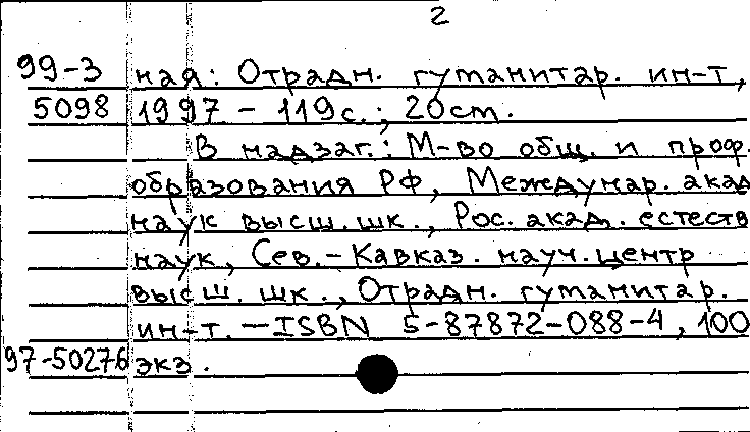 2
99-3 ная: Отрадн. гуманитар. ин-т,
5098 1997 - 119с.; 20см.
В надзаг.: М-во общ. и проф.
образования РФ, Междунар. акад
наук высш. шк., Рос. акад. естеств
наук, Сев.-Кавказ. науч. центр
высш. шк., Отрадн. гуманитар.
ин-т. — ISBN 5-87872-088-4, 100
97-50276 экз.